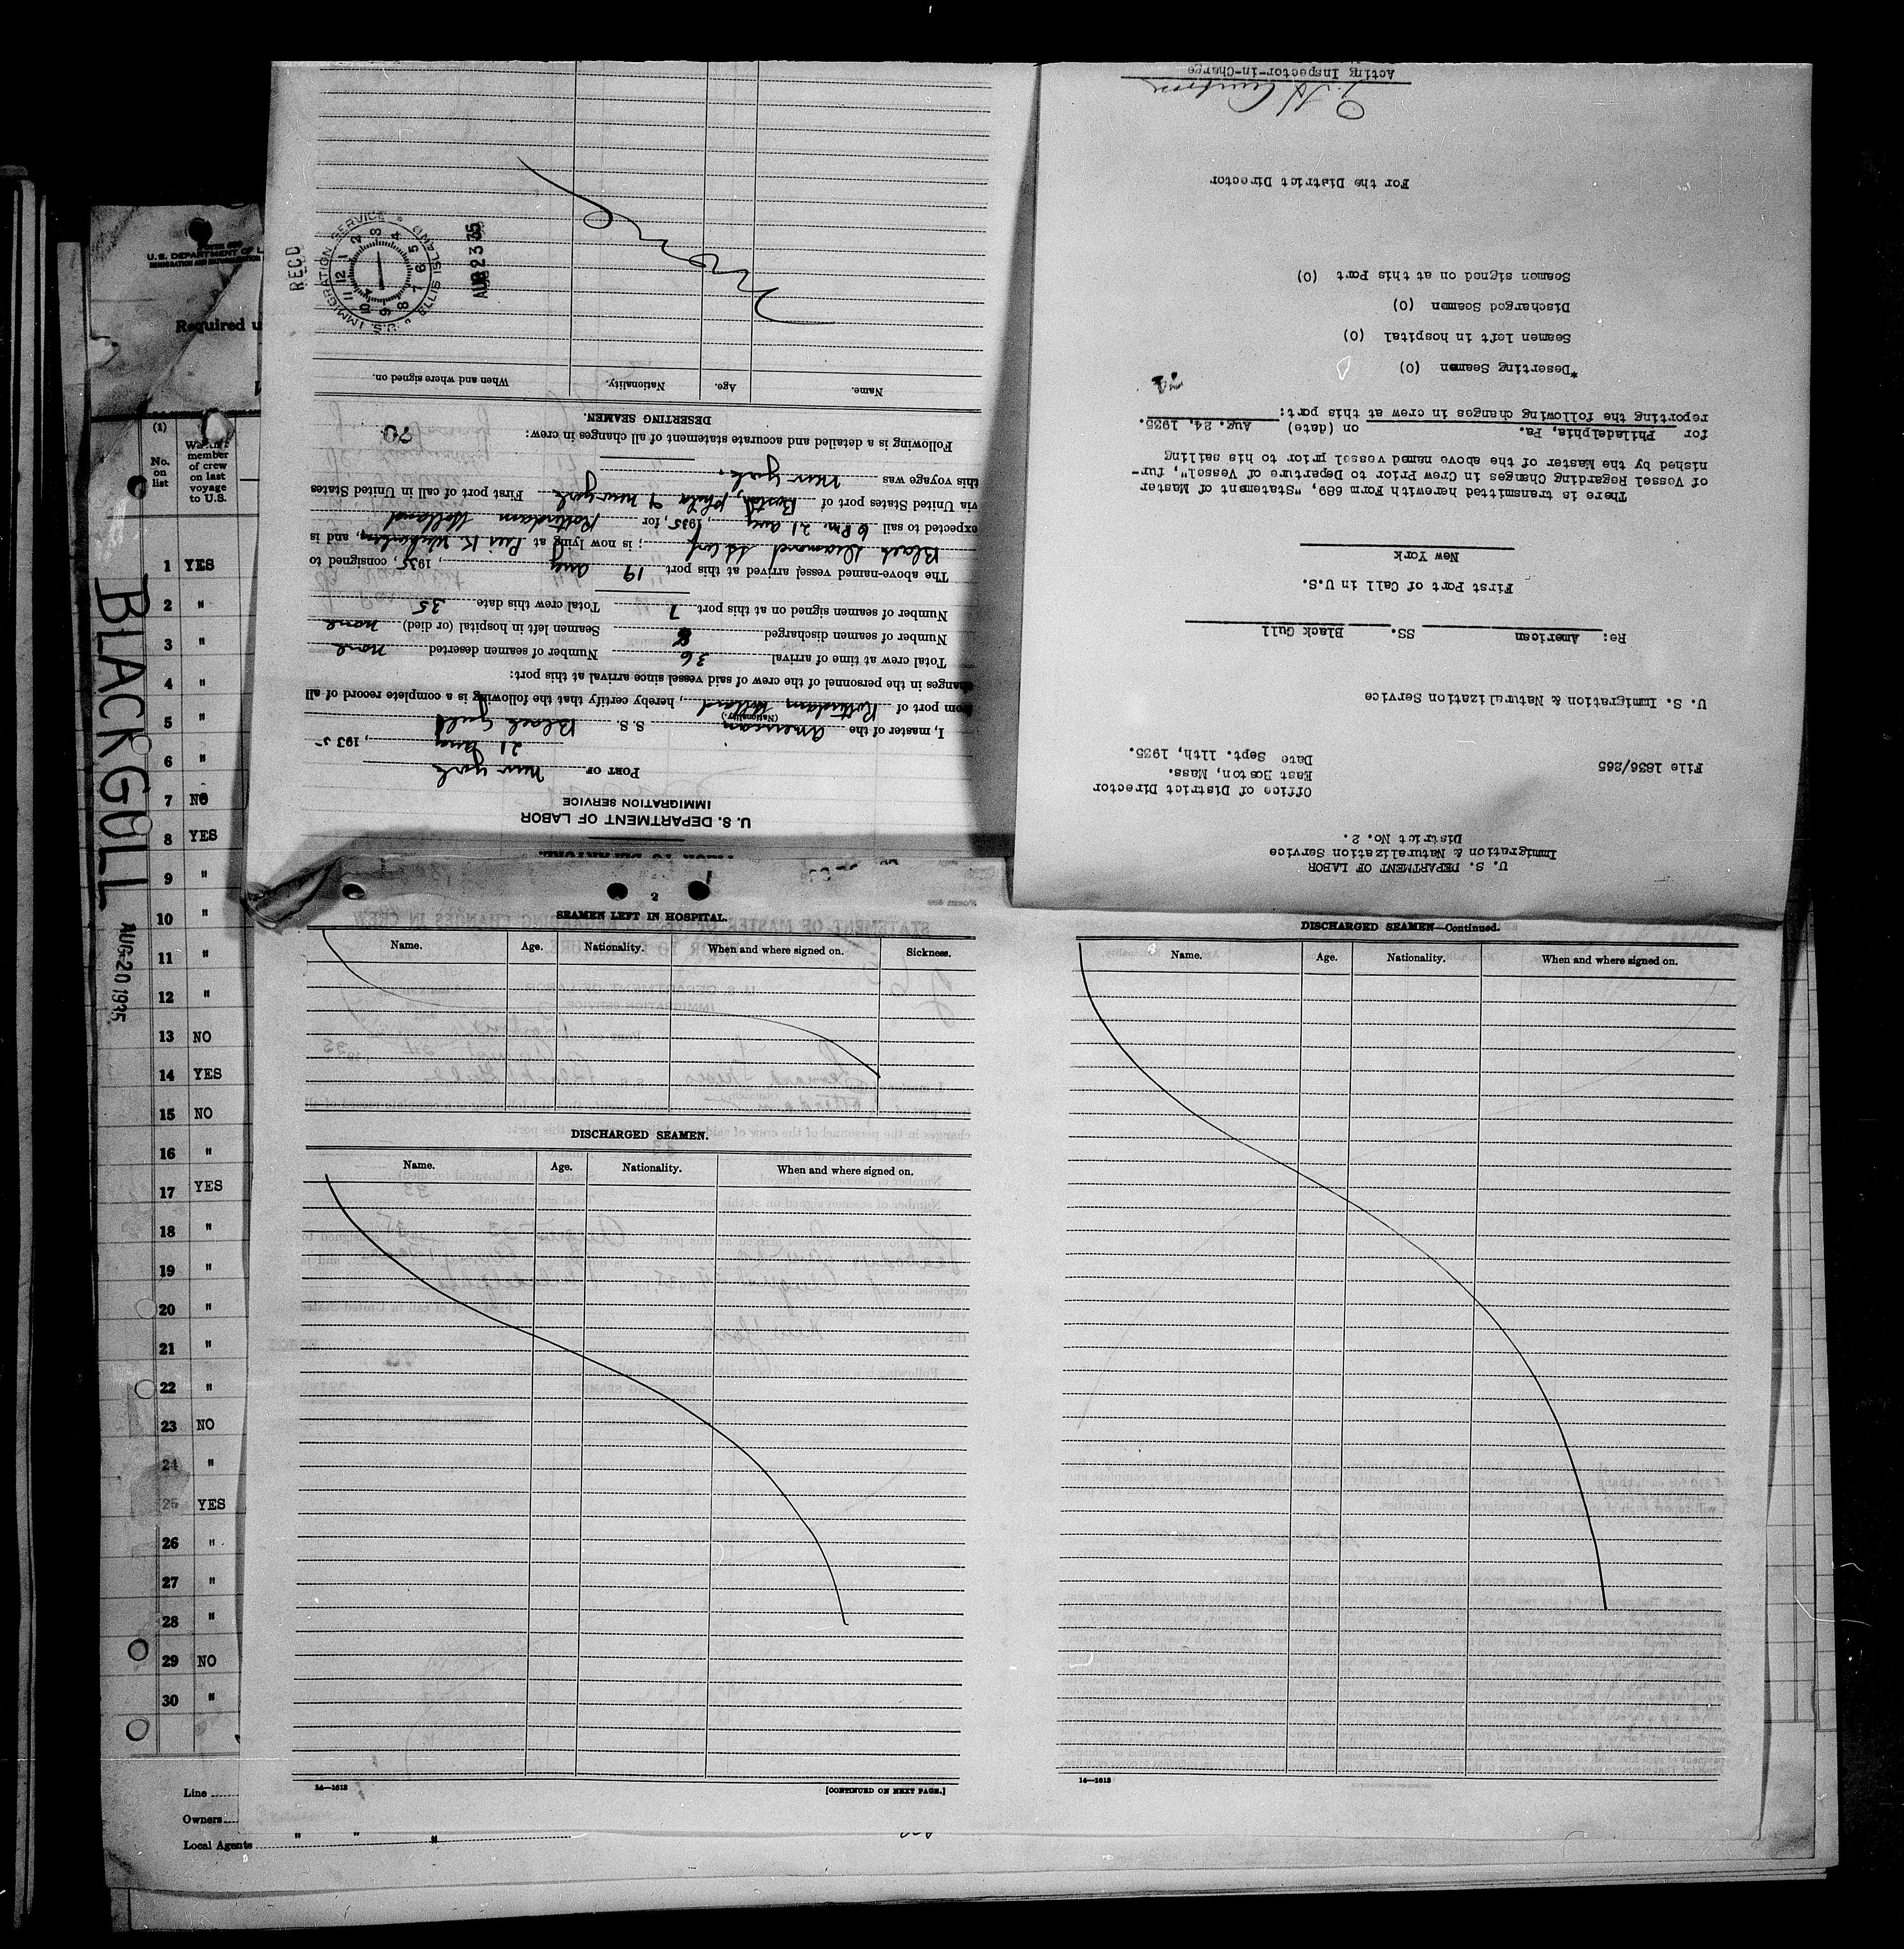 U.S. DEPARTMENT OF L
Required u
(1)
No.
on
list
member
of crew
on last
voyage
to U.S.
1 YES
2 "
3 "
4 "
5 "
6 "
7 NO
8 YES
9 "
10 "
11 "
12 "
13 NO
14 YES
15 NO
16 "
17 YES
18 "
19 "
20 "
21 "
22 "
23 NO
24 "
25 YES
26 "
27 "
28 "
29 NO
30 "
BLACK GULL
AUG 20 1935
Line
Owners
Local Agents " " "
U.S. DEPARTMENT OF LABOR
IMMIGRATION SERVICE
PORT OF New York
21 Aug, 1935
I, master of the American S. S. Black Gull
(Nationality)
from port of Rotterdam Holland, hereby certify that the following is a complete record of all
changes in the personnel of the crew of said vessel since arrival at this port:
Total crew at time of arrival 36 Number of seamen deserted none
Number of seamen discharged 8 Seamen left in hospital (or died) none
Number of seamen signed on at this port 7 Total crew this date 35
The above-named vessel arrived at this port 19 Aug, 1935, consigned to
Black Diamond SS Corp; is now lying at Pier K Weehawken, and is
expected to sail 6 Pm. 21 Aug, 1935, for Rotterdam Holland
via United States port of Boston, Phila & New York First port of call in United States
this voyage was New York.
Following is a detailed and accurate statement of all changes in crew:
70
DESERTING SEAMEN.
Name. Age. Nationality. When and where signed on.
None
RECD
AUG 23 35
U.S. IMMIGRATION SERVICE
ELLIS ISLAND
1 2 3 4 5 6 7 8 9 10 11 12
U. S. DEPARTMENT OF LABOR
Immigration & Naturalization Service
District No. 2.
Office of District Director
East Boston, Mass.
File 1836/265 Date Sept. 11th, 1935.
U. S. Immigration & Naturalization Service
Re: American SS. Black Gull
First Port of Call in U.S.
New York
There is transmitted herewith Form 689, "Statement of Master
of Vessel Regarding Changes in Crew Prior to Departure of Vessel", fur-
nished by the Master of the above named vessel prior to his sailing
for Philadelphia, Pa. on (date) Aug. 24, 1935.
reporting the following changes in crew at this port:
*Deserting Seamen (0)
Seamen left in hospital (0)
Discharged Seamen (0)
Seamen signed on at this Port (0)
For the District Director
Acting Inspector-in-Charge
2
SEAMEN LEFT IN HOSPITAL.
Name. Age. Nationality. When and where signed on. Sickness.
DISCHARGED SEAMEN.
Name. Age. Nationality. When and where signed on.
14—1613 [CONTINUED ON NEXT PAGE.]
DISCHARGED SEAMEN—Continued.
Name. Age. Nationality. When and where signed on.
14—1613